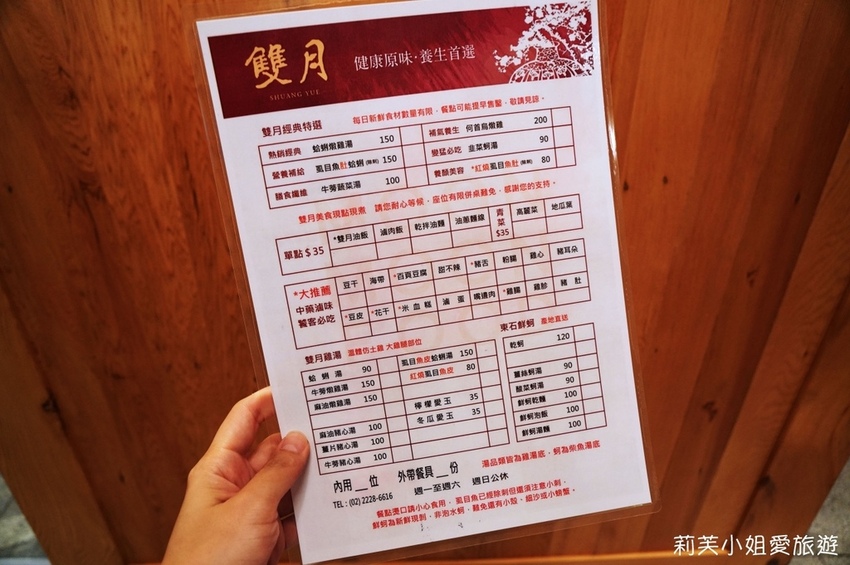 雙月
SHUANG YUE
健康原味·養生首選
雙月經典特選 每日新鮮食材數量有限，餐點可能提早售鑿，敬請見諒。
熱銷經典 蛤蜊燉雞湯 150 補氣養生 何首烏燉雞 200
營養補給 虱目魚肚蛤蜊(無刺) 150 變猛必吃 韭菜蚵湯 90
膳食纖維 牛蒡蔬菜湯 100 養顏美容 *紅燒虱目魚肚(無刺) 80
雙月美食現點現煮 請您耐心等候，座位有限併桌難免，感謝您的支持。
單點$35 *雙月油飯 滷肉飯 乾拌油麵 油蔥麵線 青菜$35 高麗菜 地瓜葉
*大推薦
中藥滷味
饕客必吃
豆干 海帶 *百頁豆腐 甜不辣 *豬舌 粉腸 雞心 豬耳朵
*豆皮 *花干 *米血糕 滷蛋 嘴邊肉 *雞腸 雞胗 豬肚
雙月雞湯 溫體仿土雞 大雞腿部位
蛤蜊湯 90
牛蒡燉雞湯 150
麻油燉雞湯 150
麻油豬心湯 100
薑片豬心湯 100
牛蒡豬心湯 100
虱目魚皮蛤蜊湯 150
紅燒虱目魚皮 80
檸檬愛玉 35
冬瓜愛玉 35
東石鮮蚵 產地直送
乾蚵 120
薑絲蚵湯 90
酸菜蚵湯 90
鮮蚵乾麵 100
鮮蚵泡飯 100
鮮蚵湯麵 100
湯品類皆為雞湯底，蚵為柴魚湯底
內用__位 外帶餐具__份
TEL：(02) 2228-6616 週一至週六 週日公休
餐點燙口請小心食用，虱目魚已經除刺但還須注意小刺、
鮮蚵為新鮮現剝，非泡水蚵，難免還有小殼、細沙或小螃蟹。
莉芙小姐愛旅遊